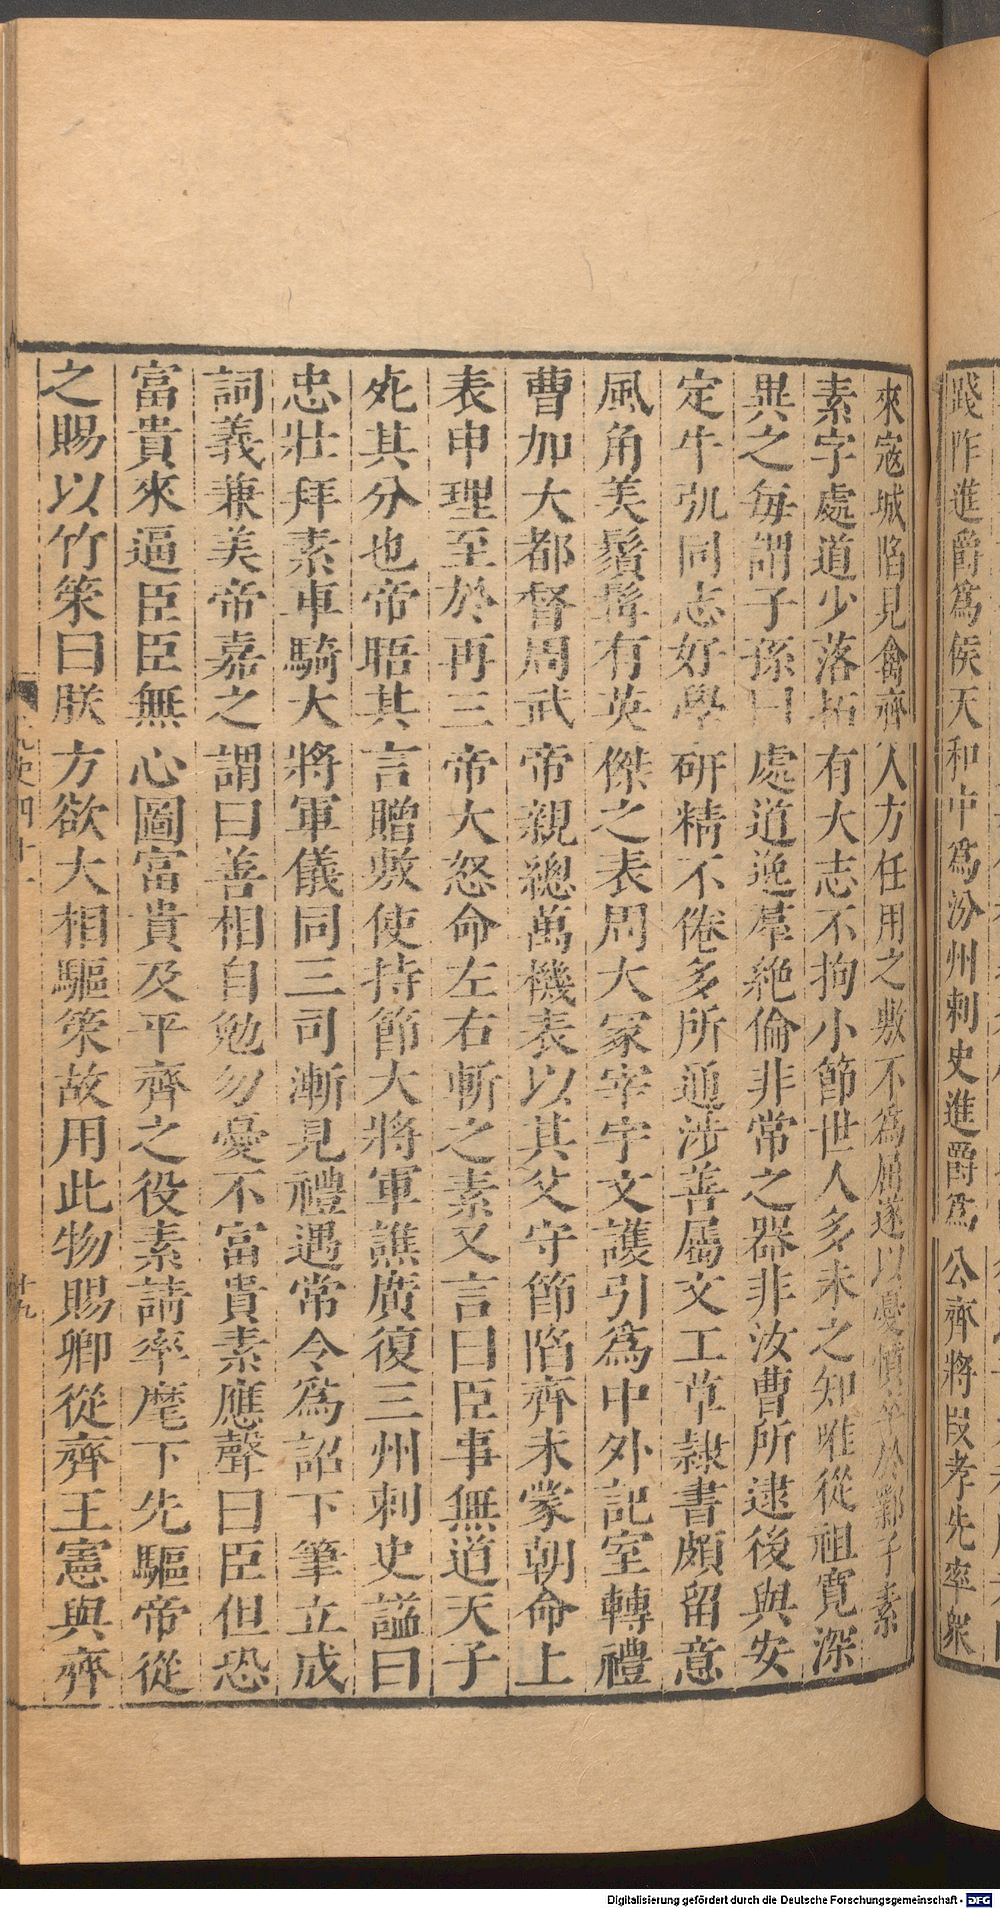 踐阼進爵爲侯天和中爲汾州刺史進爵爲公齊將段孝先率衆
來寇城陷見禽齊人方任用之敷不爲屈遂以憂憤卒於鄴子素
素字處道少落拓有大志不拘小節世人多未之知唯從祖寬深
異之每謂子孫曰處道逸羣絶倫非常之器非汝曹所逮後與安
定牛弘同志好學研精不倦多所通涉善屬文工草隸書頗留意
風角美鬚髯有英傑之表周大冢宰宇文護引爲中外記室轉禮
曹加大都督周武帝親總萬機表以其父守節陷齊未蒙朝命上
表申理至於再三帝大怒命左右斬之素又言曰臣事無道天子
死其分也帝晤其言贈敷使持節大將軍譙廣復三州刺史謚曰
忠壯拜素車騎大將軍儀同三司漸見禮遇常令爲詔下筆立成
詞義兼美帝嘉之謂曰善相自勉勿憂不富貴素應聲曰臣但恐
富貴來逼臣臣無心圖富貴及平齊之役素請率麾下先驅帝從
之賜以竹筞曰朕方欲大相驅筞故用此物賜卿從齊王憲與齊
史四十一
十九
Digitalisierung gefördert durch die Deutsche Forschungsgemeinschaft - DFG